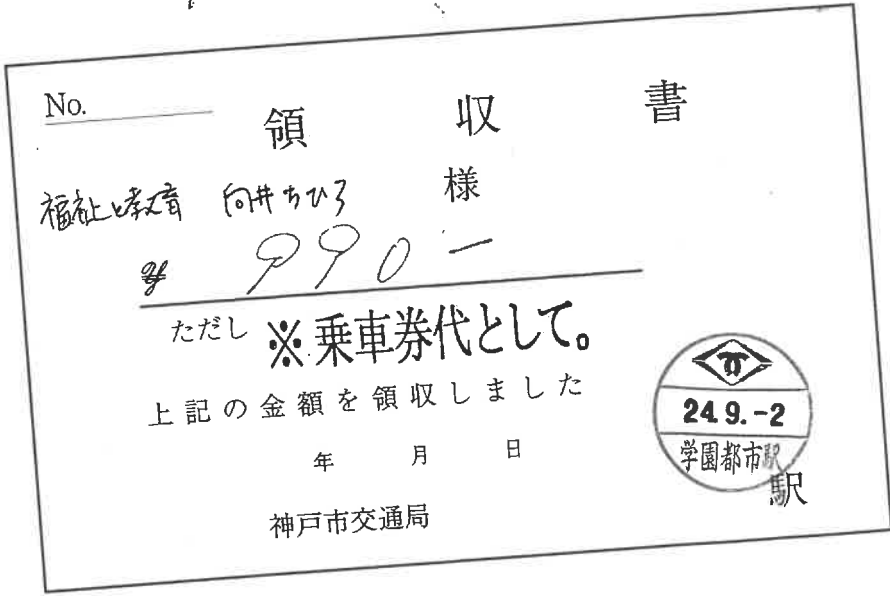 No.
領収書
福祉と教育 向井ちひろ 様
¥ 990-
ただし ※乗車券代として。
上記の金額を領収しました
年 月 日
24.9.-2
学園都市駅
駅
神戸市交通局